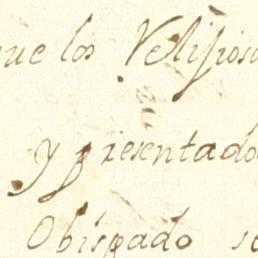 que los Religiosos
y presentado
Obispado se